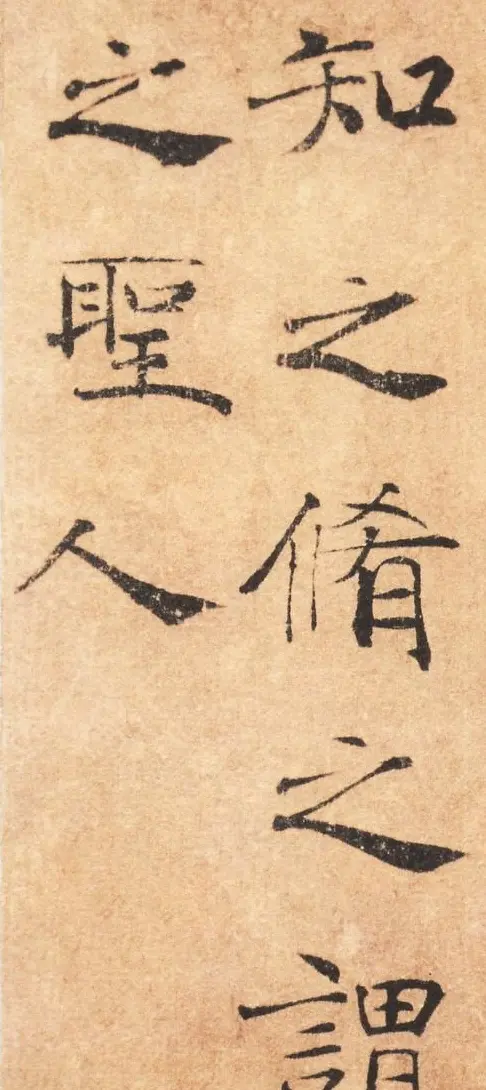 知之脩之謂
之聖人